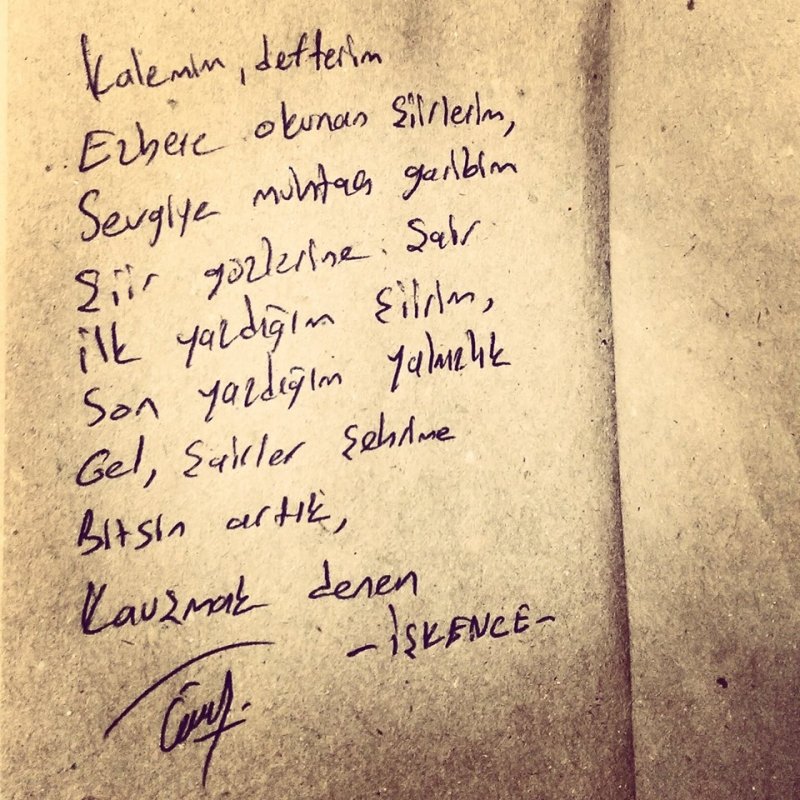 Kalemim, defterim
Ezbere okunan şiirlerim,
Sevgiye muhtaç garibim
Şiir gözlerine şair
İlk yazdığım şiirim,
Son yazdığım yalnızlık
Gel, şairler şehrime
Bitsin artık,
Kavuşmak denen
-İŞKENCE-